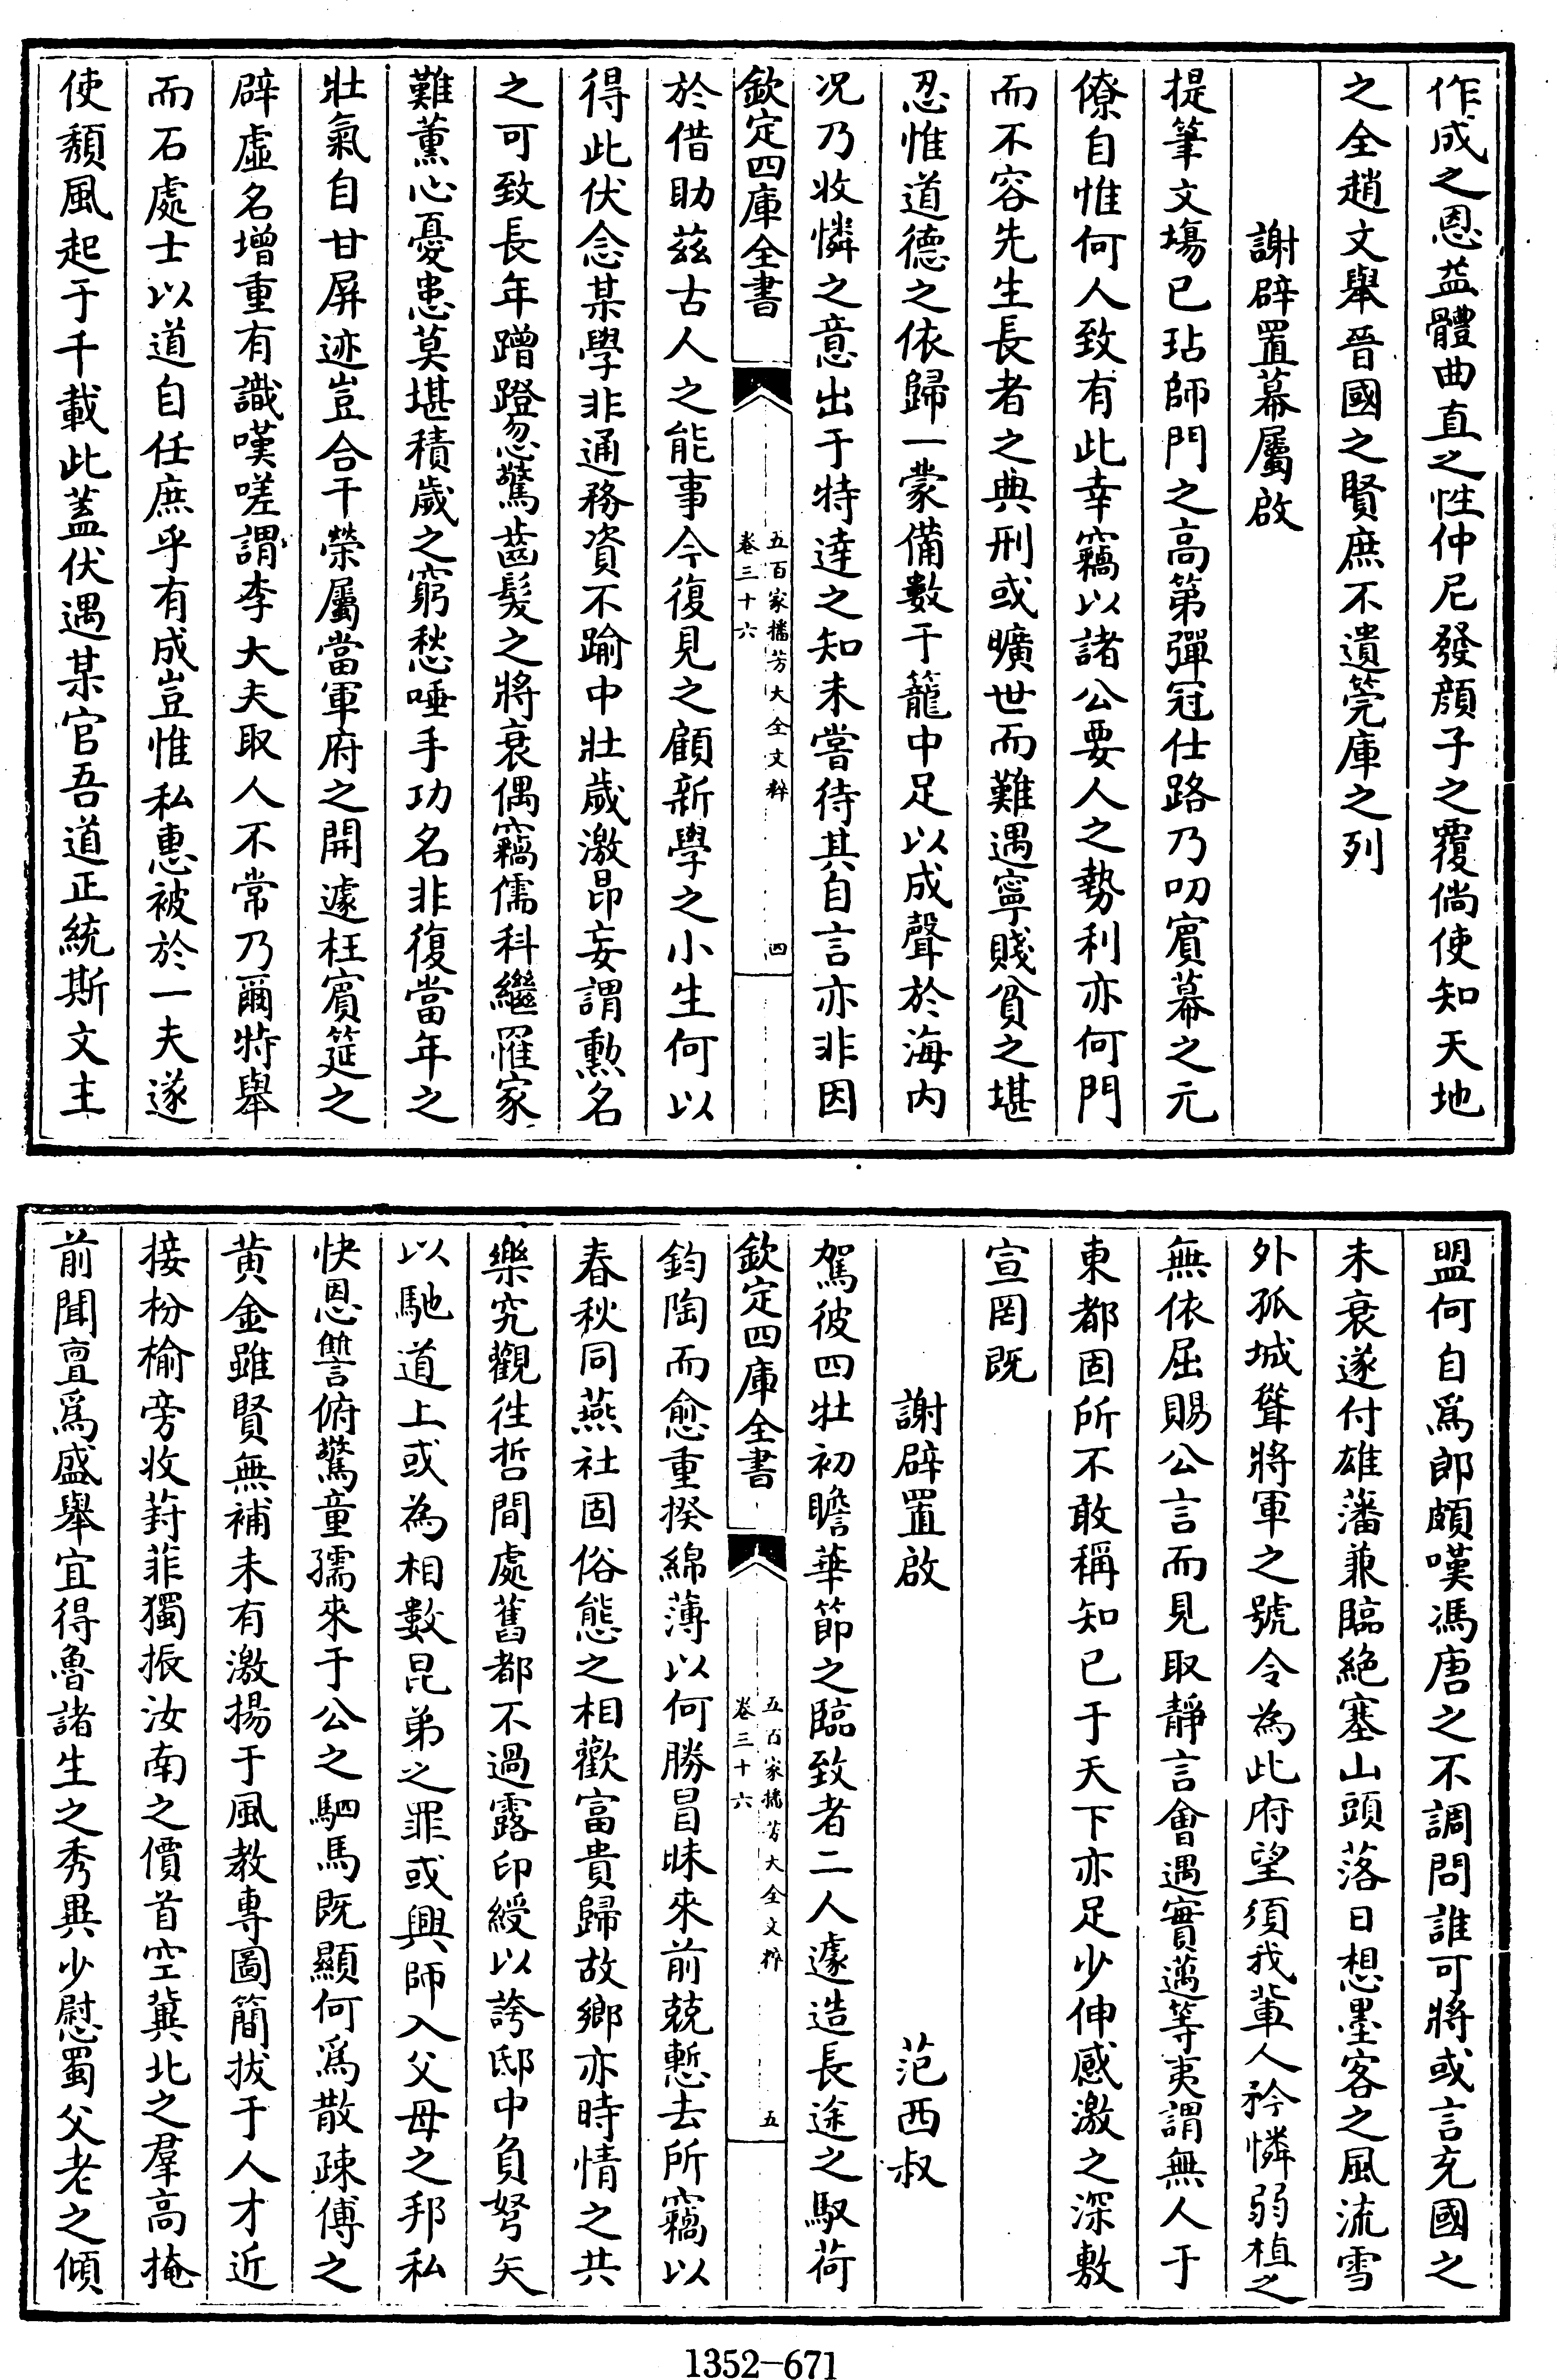 作成之恩益體曲直之性仲尼發顔子之覆倘使知天地
之全趙文舉晉國之賢庶不遺筦庫之列
謝辟置幕屬啟
提筆文塲已玷師門之高第彈冠仕路乃叨賓幕之元
僚自惟何人致有此幸竊以諸公要人之勢利亦何門
而不容先生長者之典刑或曠世而難遇寧賤貧之堪
忍惟道德之依歸一蒙備數于籠中足以成聲於海内
况乃收憐之意出于特達之知未嘗待其自言亦非因
欽定四庫全書
五百家播芳大全文粹
卷三十六
四
於借助兹古人之能事今復見之顧新學之小生何以
得此伏念某學非通務資不踰中壯歲激昂妄謂勲名
之可致長年蹭蹬忽驚齒髮之將衰偶竊儒科繼罹家
難薰心憂患莫堪積歲之窮愁唾手功名非復當年之
壯氣自甘屏迹豈合干榮屬當軍府之開遽枉賓筵之
辟虛名增重有識嘆嗟謂李大夫取人不常乃爾特舉
而石處士以道自任庶乎有成豈惟私惠被於一夫遂
使頽風起于千載此蓋伏遇某官吾道正統斯文主
盟何自爲郎頗嘆馮唐之不調問誰可將或言充國之
未衰遂付雄藩兼臨絶塞山頭落日想墨客之風流雪
外孤城聳將軍之號令為此府望須我輩人矜憐弱植之
無依屈賜公言而見取靜言會遇實邁等夷謂無人于
東都固所不敢稱知已于天下亦足少伸感激之深敷
宣罔既
謝辟置啟
范西叔
駕彼四牡初瞻華節之臨致者二人遽造長途之馭荷
欽定四庫全書
五百家播芳大全文粹
卷三十六
五
鈞陶而愈重揆綿薄以何勝冒昧來前兢慙去所竊以
春秋同燕社固俗態之相歡富貴歸故鄉亦時情之共
樂究觀徃哲間處舊都不過露印綬以誇邸中負弩矢
以馳道上或為相數昆弟之罪或興師入父母之邦私
快恩讐俯驚童孺來于公之駟馬既顯何爲散疎傅之
黄金雖賢無補未有激揚于風教專圖簡拔于人才近
接枌榆旁收葑菲獨振汝南之價首空冀北之羣高掩
前聞亶爲盛舉宜得魯諸生之秀異少慰蜀父老之傾
1352-671